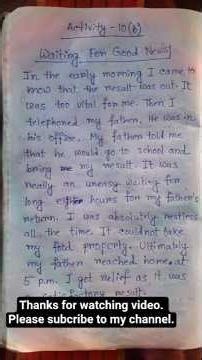 Activity - 10(b)
Waiting For Good News
In the early morning I came to
know that the result was out. It
was too vital for me. Then I
telephoned my father. He was in
his office. My father told me
that he would go to school and
bring my result. It was
really an uneasy waiting for
long hours for my father's
return. I was absolutely restless
all the time. It could not take
my food properly. Ultimately
my father reached home at
5 p.m. I get relief as it was
result.
Thanks for watching video.
Please subcribe to my channel.